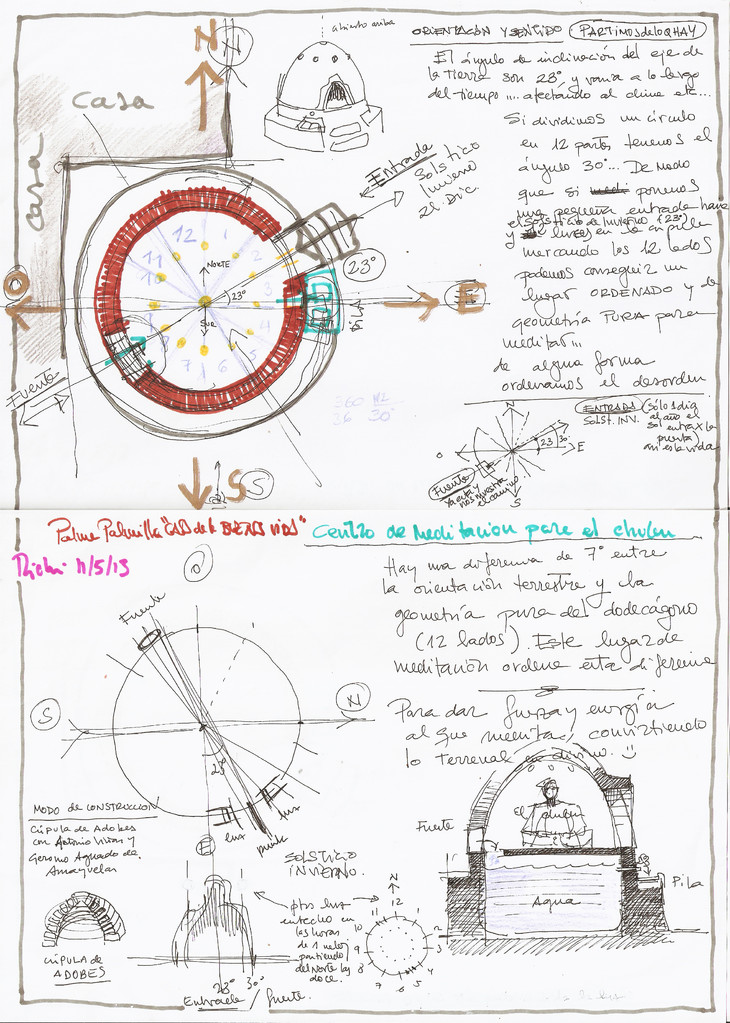 abierto arriba
ORIENTACIÓN Y SENTIDO PARTIMOS de lo QHAY
El ángulo de inclinación del eje de
la tierra son 23° y varía a lo largo
del tiempo .... afectando al clima etc...
Si dividimos un círculo
en 12 partes tenemos el
ángulo 30°... De modo
que si ponemos
una pequeña entrada hacia
el solsticio de Invierno (23°)
y luces en la cúpula
marcando los 12 lados
podemos conseguir un
lugar ORDENADO y de
geometría PURA para
meditar...
de alguna forma
ordenamos el desorden
N
N
casa
casa
Entrada
Solsticio
Invierno
21 Dic.
23°
12
1
2
3
4
5
6
7
10
11
NORTE
23°
SUR
O
E
E
Fuente
S
S
360 12
36 30°
ENTRADA
SOLST. INV.
(sólo 1 día
al año el
sol entra x la
puerta
así es la vida
N
23
30
E
S
O
Fuente
nos muestra
el camino
Palma Palmilla "CASA de la BUENA VIDA" Centro de meditación para el chulen
11/5/13
Hay una diferencia de 7° entre
la orientación terrestre y la
geometría pura del dodecágono
(12 lados). Este lugar de
meditación ordena esta diferencia
Para dar fuerza y energía
al que medita, convirtiendo
lo terrenal en divino.
O
Fuente
S
N
23°
luz
luz
E
MODO DE CONSTRUCCIÓN
Cúpula de Adobes
con Antonio Vivas y
Geromo Aguado de
Amayuelas
CÚPULA DE
ADOBES
SOLSTICIO
INVIERNO.
ptos luz
en techo en
las horas
de 1 reloj
partiendo
del Norte las
doce.
23°
30°
Entrada / fuente.
N
12
11
1
10
2
9
3
8
4
7
6
5
Fuente
El chulen
Agua
Pila